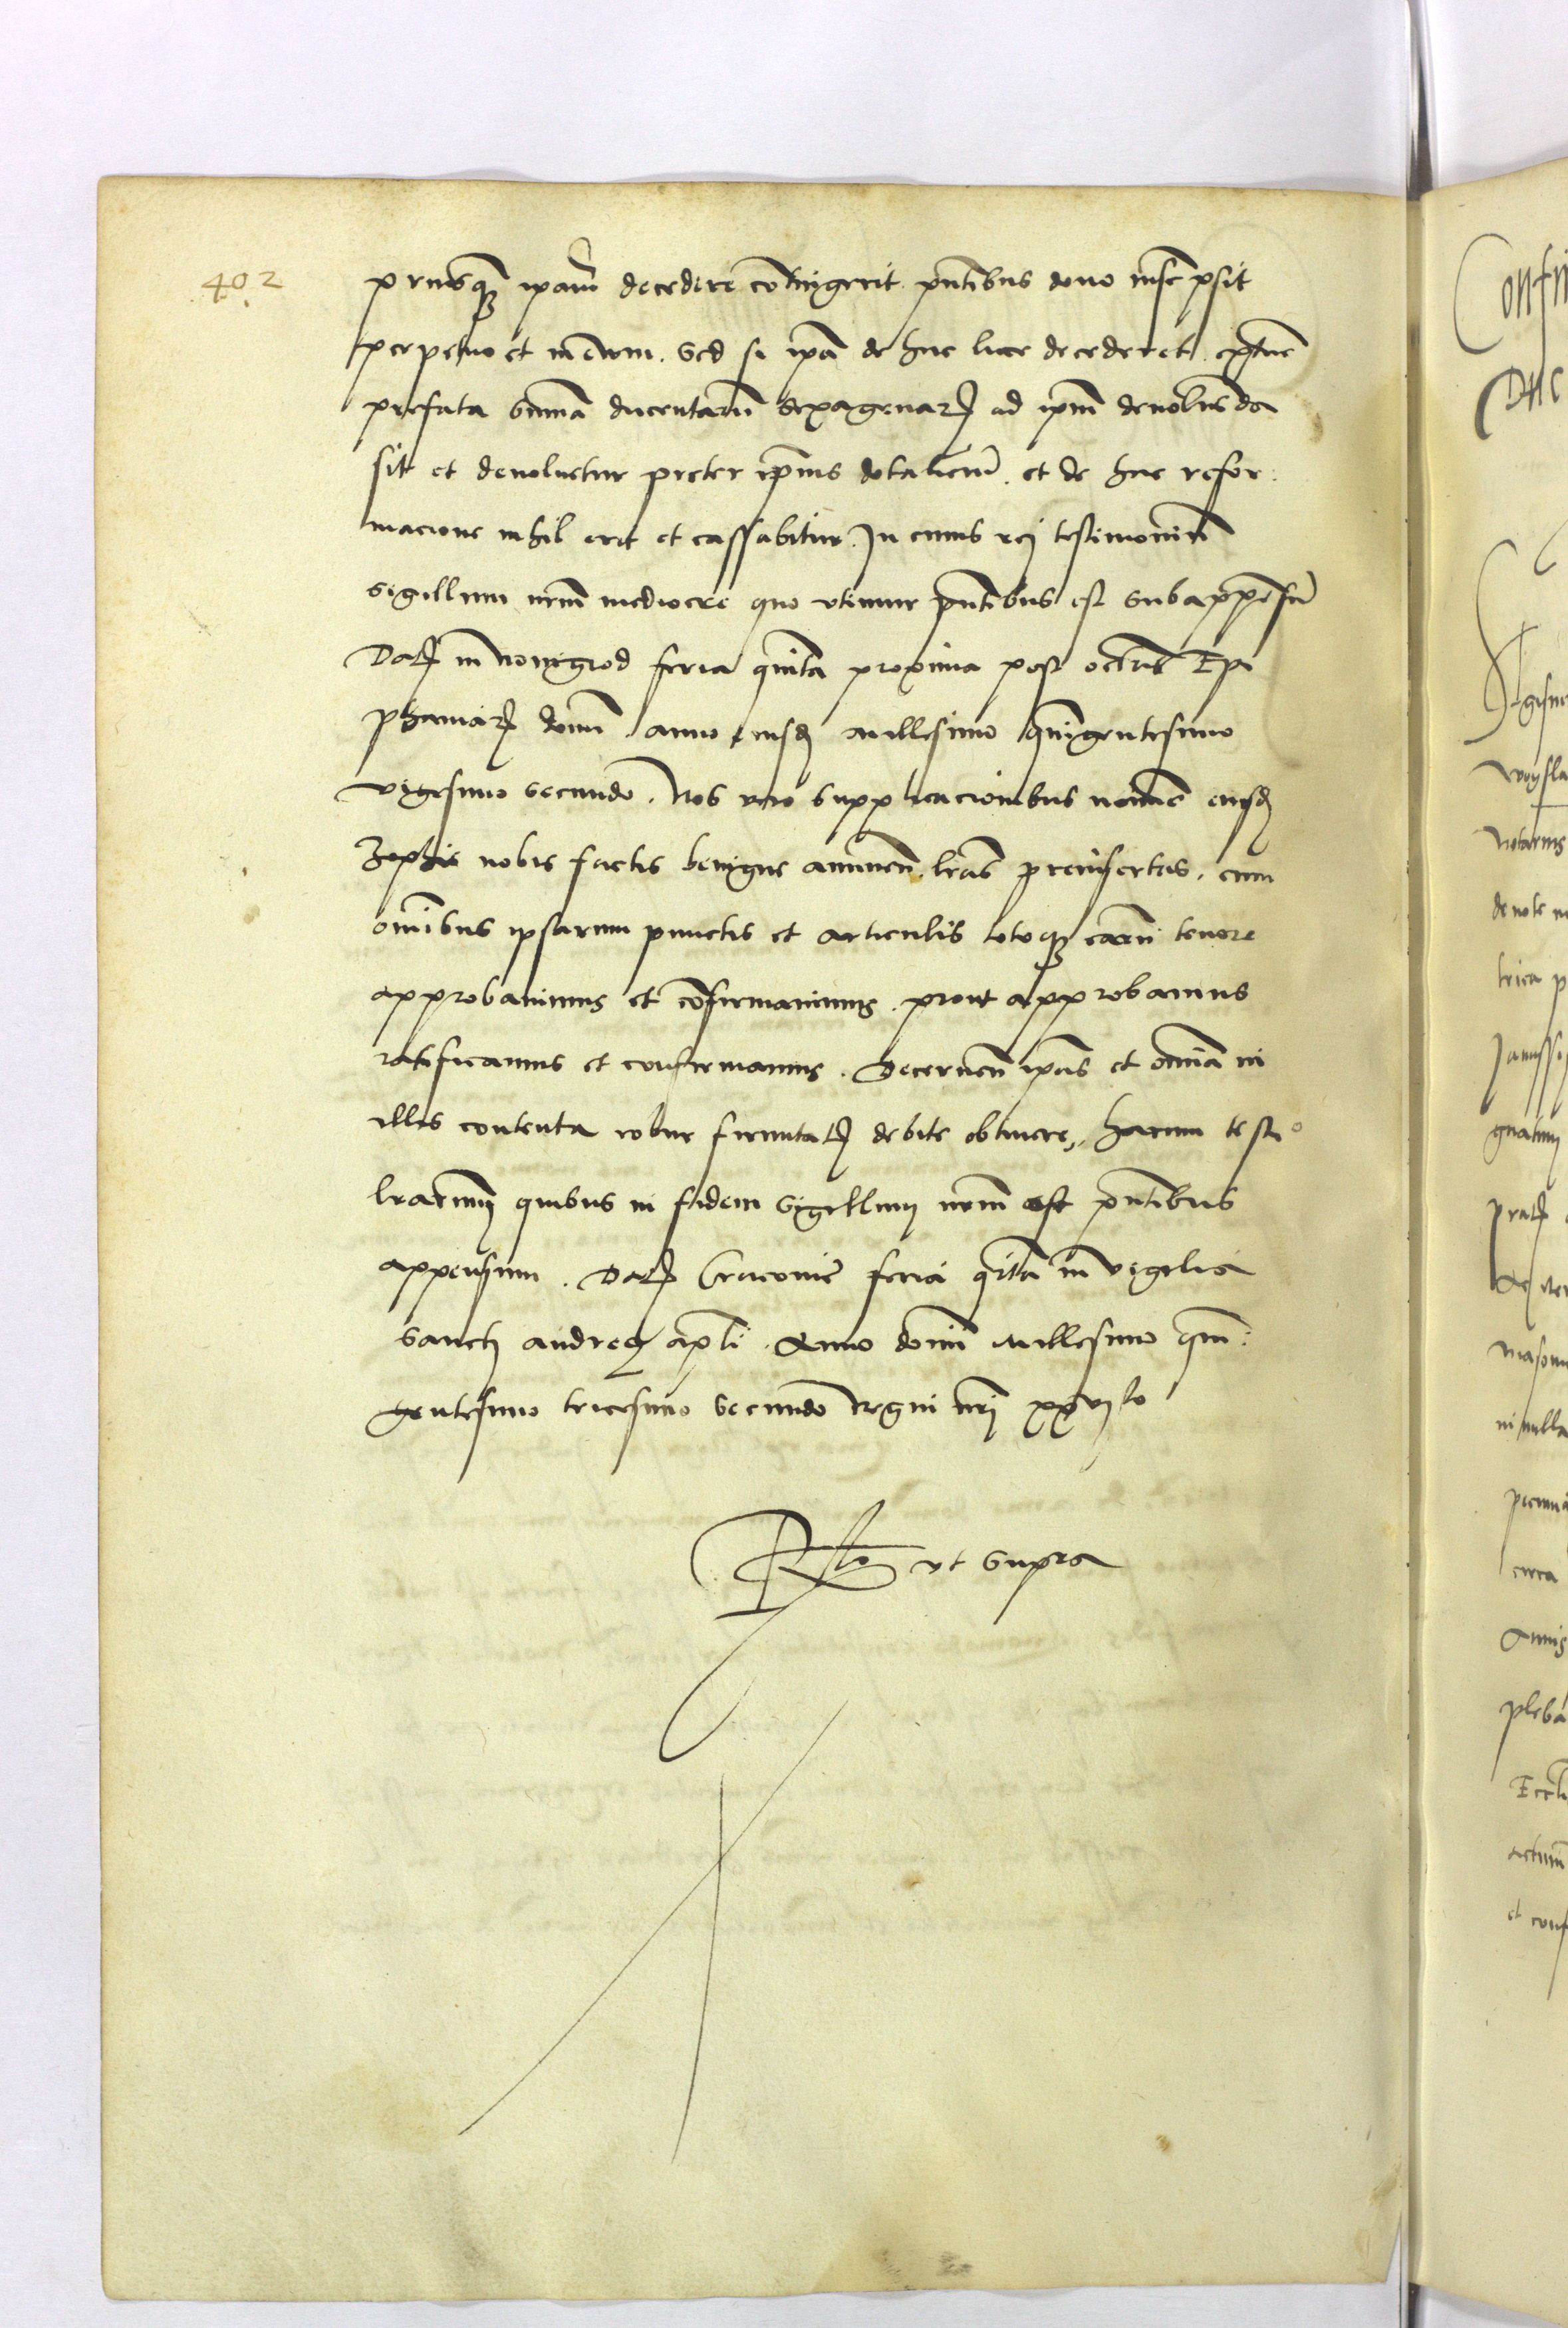 402
priusq[ue] ipam decedere co[n]tigerit p[rese]ntibus dono inscripsit
perpetuo et in evum. Sed si ipa de hac luce decederet extunc
prefata summa ducentaru[m] sexagenar[um] ad ipm devolvenda
sit et devolvetur preter ipius dotalicium. et de hac refor:
macione nihil erit et cassabitur. In cuius rej testimoniu[m]
sigillum nrm mediocre quo utimur pntibus est subappensu[m]
Dat[um] in novigrod feria quinta proxima post octavas Epi
phaniar[um] domi anno eiusd[em] millesimo quingentesimo
vigesimo secundo. Nos vero supplicacionibus no[m]i[n]e eiusd[em]
Zophie nobis factis benigne annuen[tes] lras preinsertas, cum
omibus ipsarum punctis et articulis totoq[ue] earu[m] tenore
approbavimus et co[n]firmavimus prout approbamus
ratificamus et confirmamus. Decernen[tes] ipas et omia in
illis contenta robur firmitat[is] debite obtinere, harum testi[moni]o
lrarum quibus in fidem sigillum nrm est pntibus
appensum. Dat[um] Cracovie feria qu[i]nta in vigilia
sancti andree apli. Anno domi millesimo quin:
gentesimo tricesimo secundo regni nrj xxvi to
R[e]l[a]to ut supra
Confi
Dne
Sigism
woysla
Notarius
devote
trica p
Janussi
gnatum
prat
de
Masovi
in nulla
premia
circa
Annis
pleba
Eccle
actum
et conf